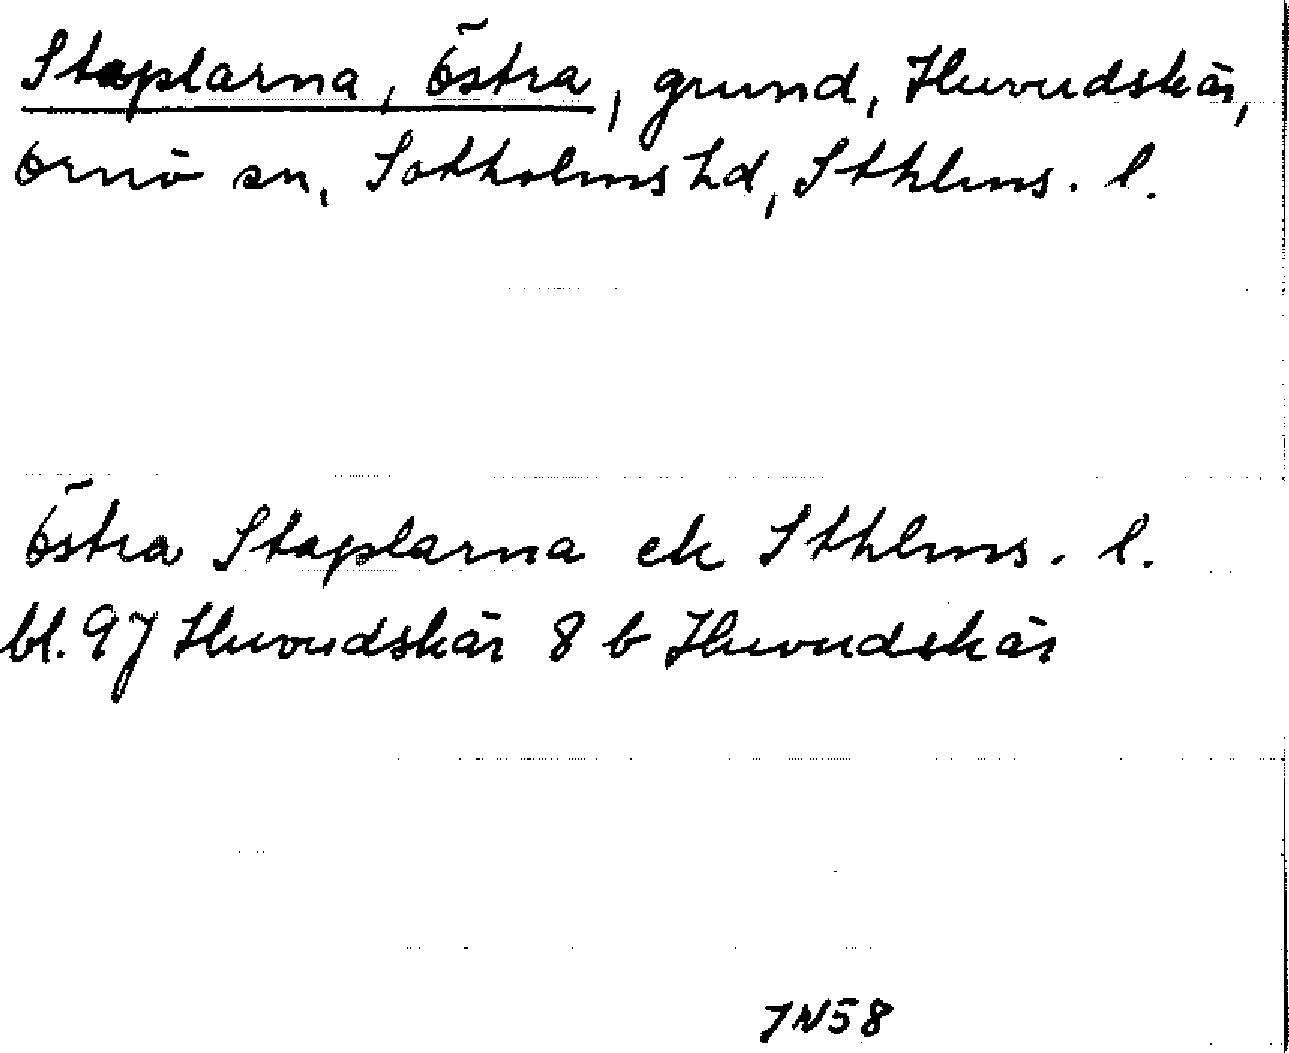 Staplarna, Östra, grund, Huvudskär,
Ornö sn, Sotholms hd, Sthlms. l.
Östra Staplarna ek Sthlms. l.
bl. 97 Huvudskär 8 b Huvudskär
7N58